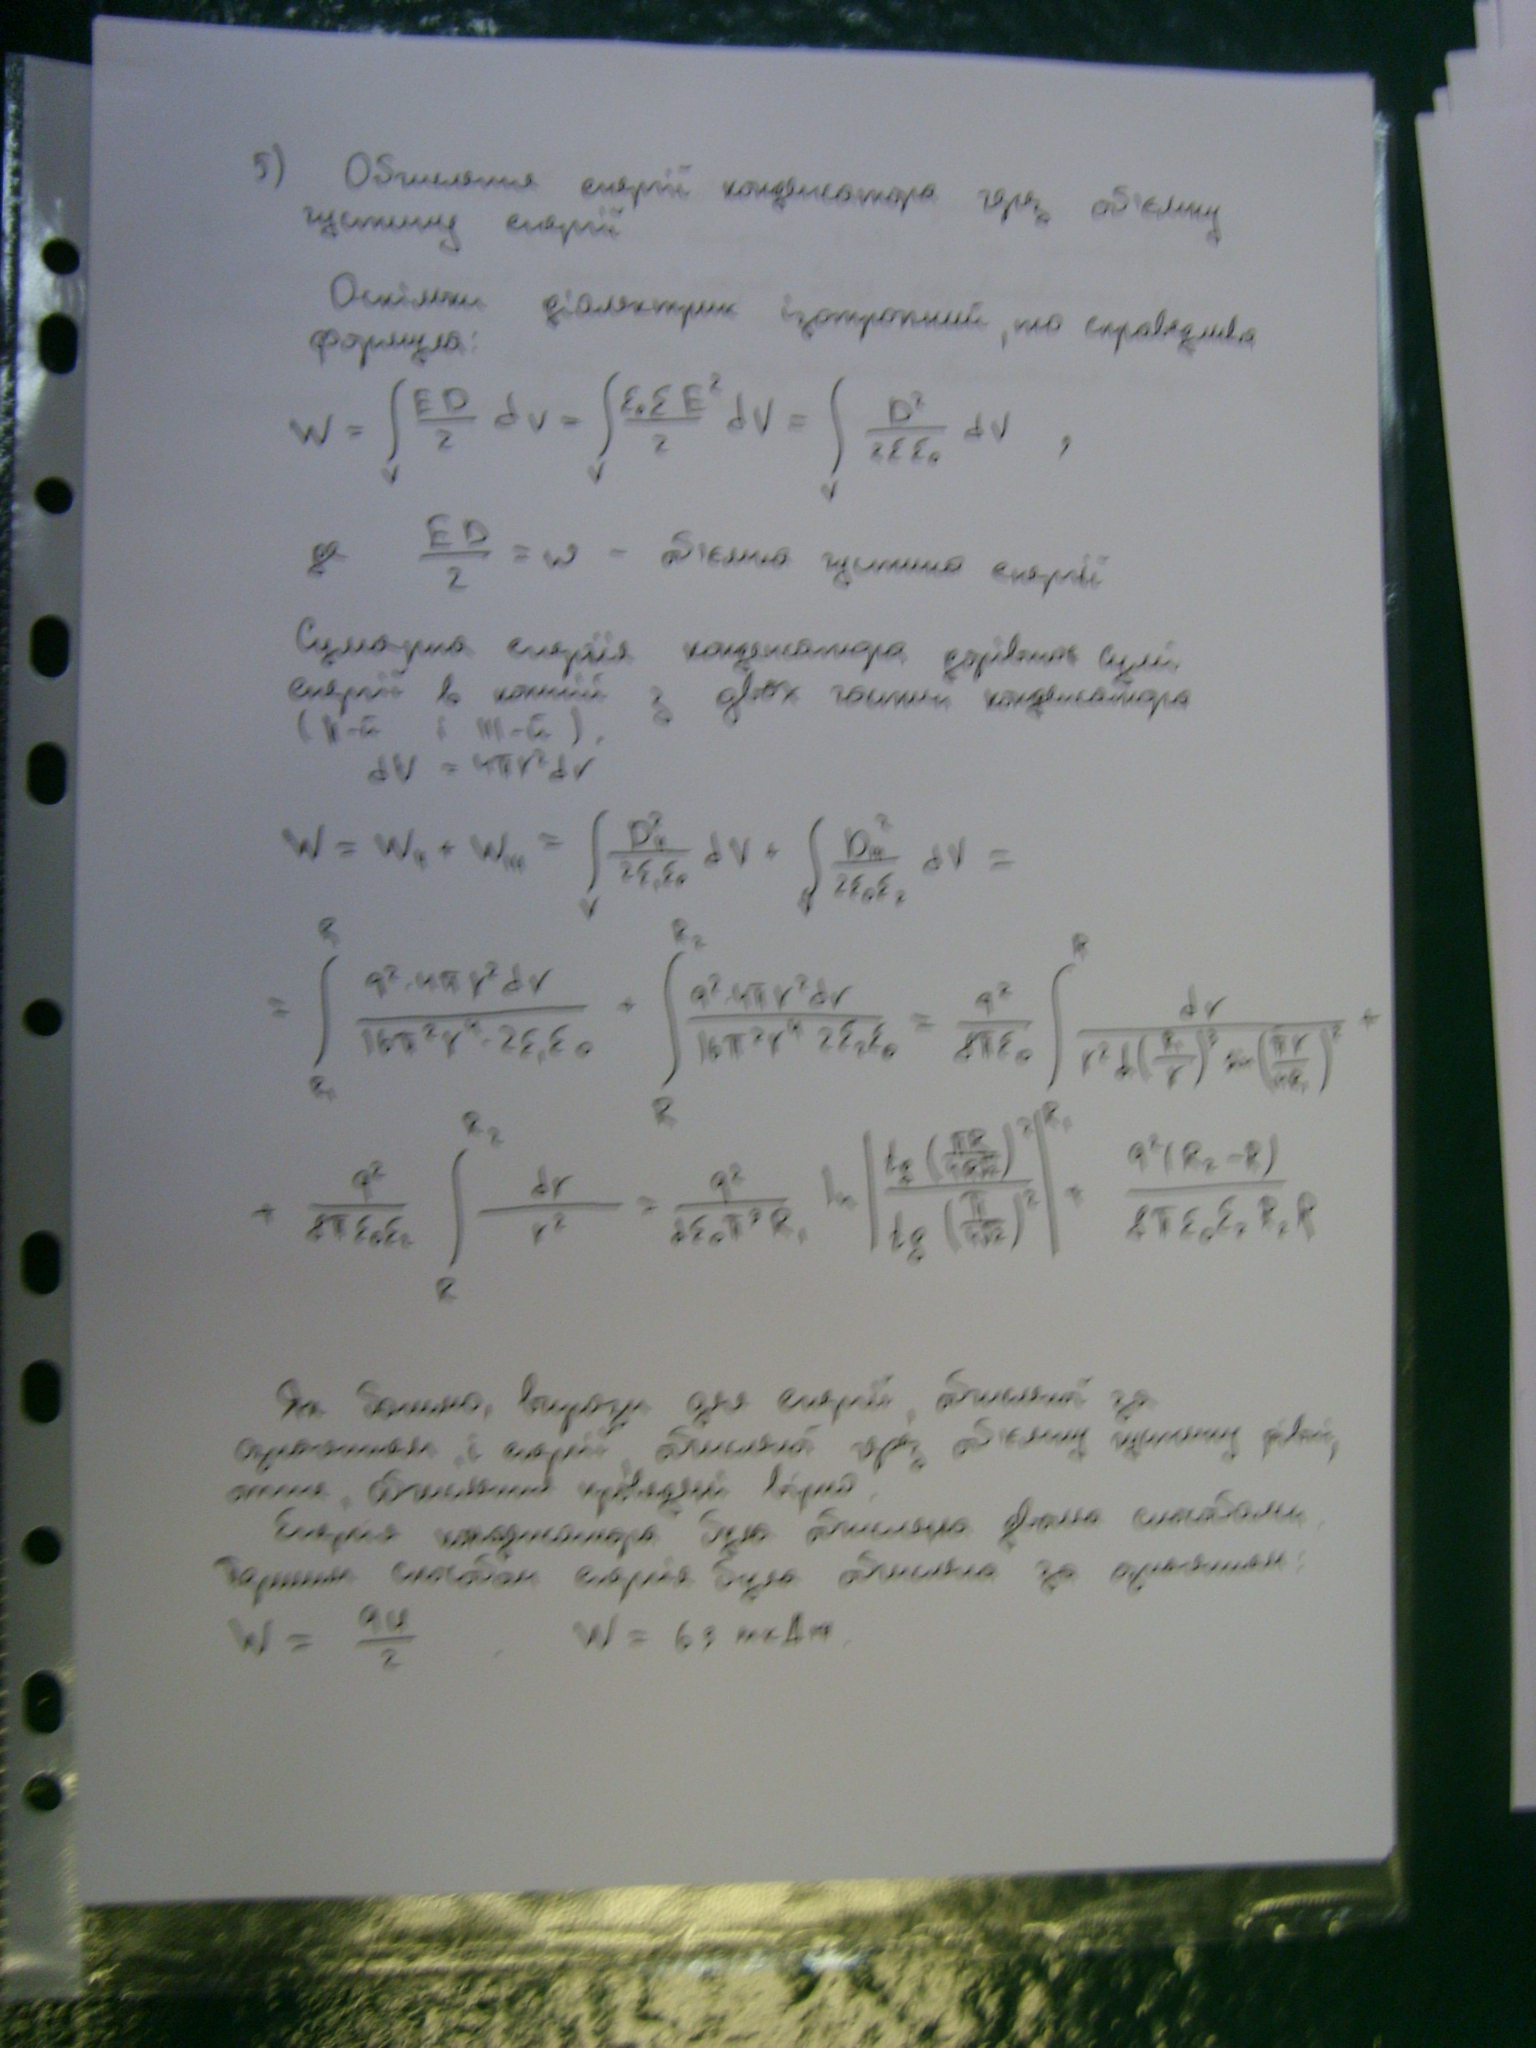 5) Обчислення енергії конденсатора через об'ємну
густину енергії
Оскільки діалектрик ізотропний, то справедлива
формула:
W = ∫_V ED/2 dV = ∫_V ε₀εE²/2 dV = ∫_V D²/2εε₀ dV ,
де ED/2 = w – об'ємна густина енергії
Сумарна енергія конденсатора дорівнює сумі
енергії в кожній з двох частин конденсатора
(II-й і III-й).
dV = 4πr²dr
W = W_II + W_III = ∫_V D_II²/2ε₁ε₀ dV + ∫_V D_III²/2ε₀ε₂ dV =
= ∫_{R₁}^{R} q²·4πr²dr/16π²r⁴·2ε₁ε₀ + ∫_{R}^{R₂} q²·4πr²dr/16π²r⁴2ε₂ε₀ = q²/8πε₀ ∫^{R} dr
+ q²/8πε₀ε₂ ∫_{R}^{R₂} dr/r² = ln + q²(R₂-R)/8πε₀ε₂R₂R
Як бачимо, вирази для енергії, обчисленої за
означенням, і енергії, обчисленої через об'ємну густину рівні,
отже, обчислення проведені вірно.
Енергія конденсатора була обчислена двома способами.
Першим способом енергія була обчислена за означенням:
W = qU/2 . W = 63 мкДж.